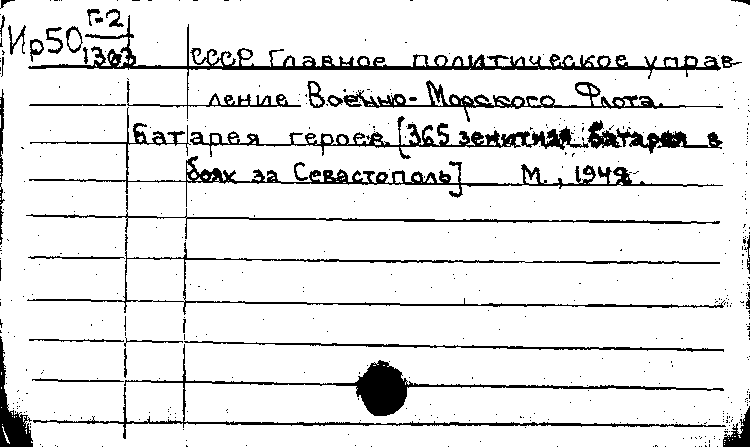 Ир50 Г-2
1303 СССР. Главное политическое управ-
ление Военно-Морского Флота.
Батарея героев. [365 зенитная батарея в
боях за Севастополь] М., 1942.